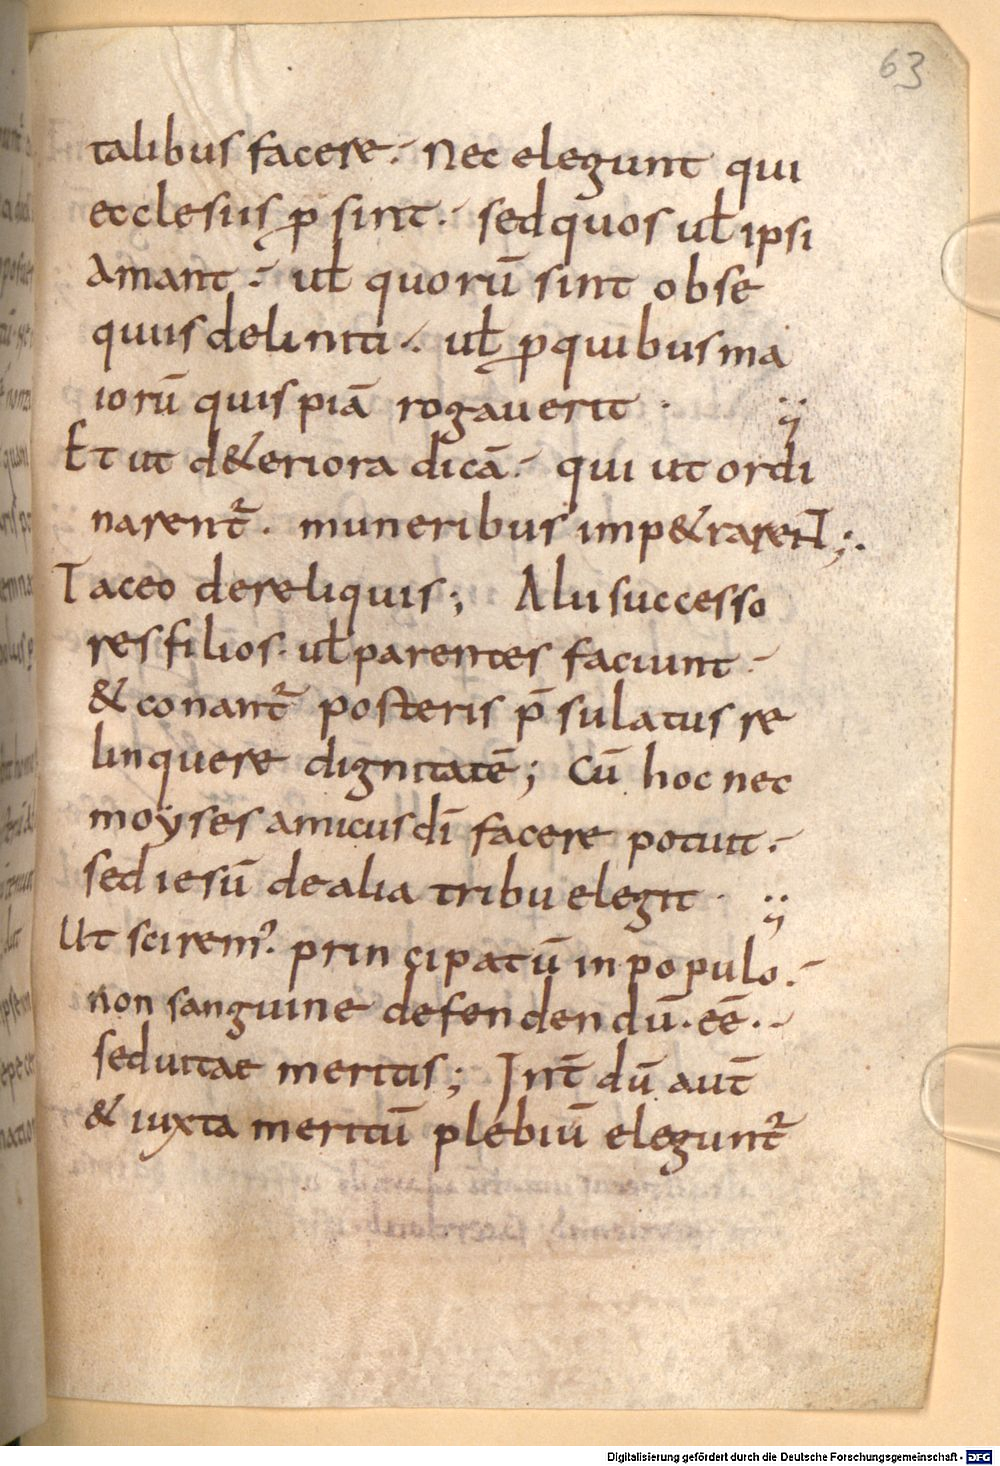 63
talibus facere·- Nec elegunt qui
ecclesiis ꝓ sint·- sed quos uł ipsi
amant·- uł quorū sint obse
quiis deliniti·- uł ꝓ quibus ma
iorū quispiā rogauerit·
Et ut d&eriora dicā·- qui ut ordi
narent᷑· muneribus imp&rarent;·
Taceo dereliquis; Alii successo
res filios· uł parentes faciunt·-
& conant᷑ posteris p̄sulatus re
linquere dignitatē; Cū hoc nec
moyses amicus dī facere potuit·-
sed iesū de alia tribu elegit·
Ut sciremꝰ· principatū in populo·-
non sanguine defendendū· eē·-
sed uitae meritis; Int̄ dū aut̄
& iuxta meritū plebiū elegunt᷑
Digitalisierung gefördert durch die Deutsche Forschungsgemeinschaft - DFG